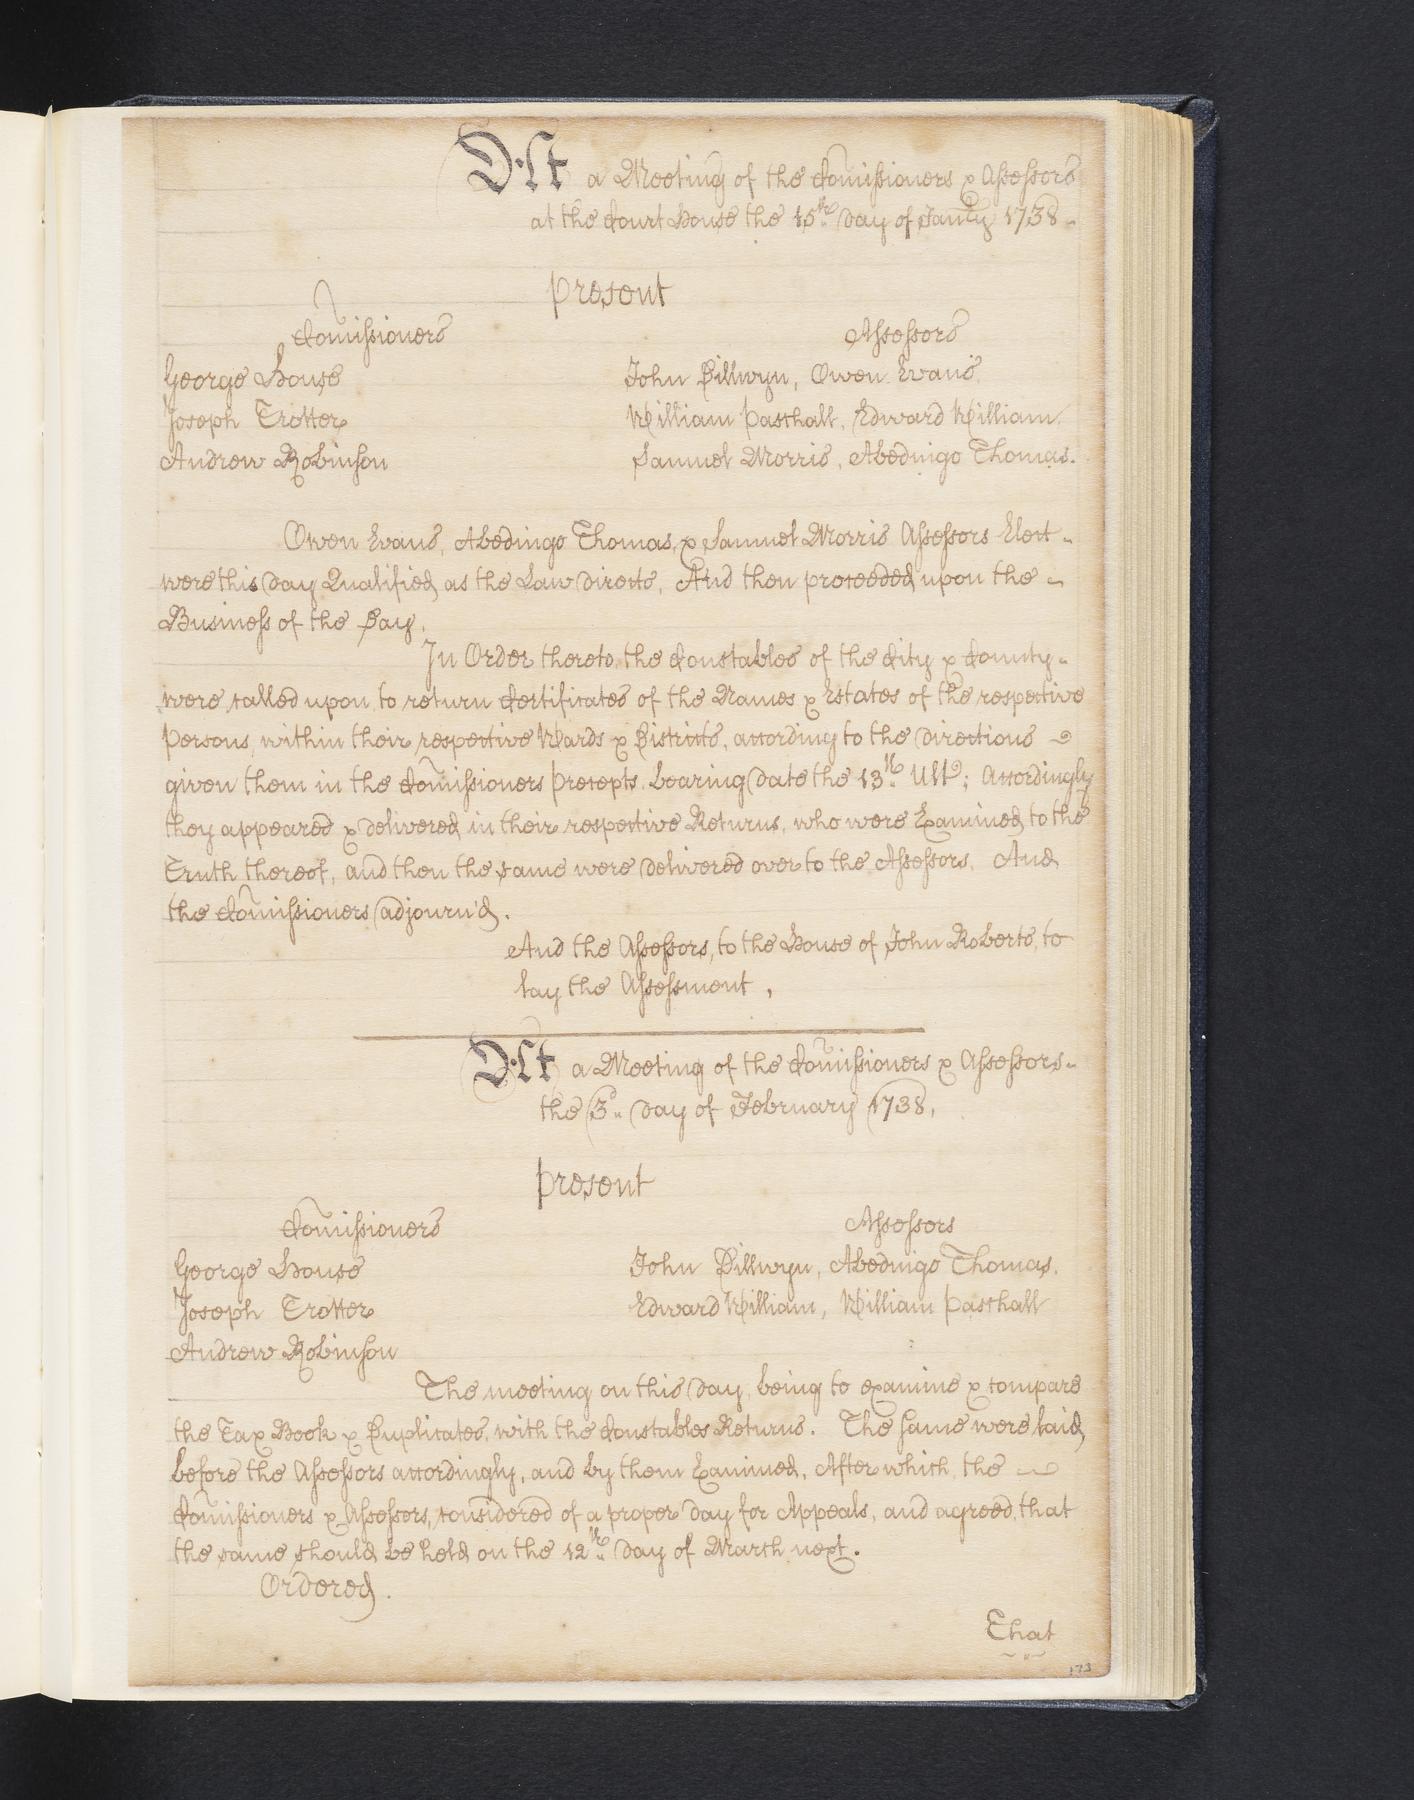 At a Meeting of the Comissioners & Assessors
at the Court House the 15th day of Janry 1738
Present
Comissioners Assessors
George House John Dillwyn, Owen Evans
Joseph Trotter William Paschall, Edward William
Andrew Robinson Samuel Morris, Abednigo Thomas.
Owen Evans, Abednigo Thomas, & Samuel Morris Assessors Elect
were this day Qualified as the Law directs, And then proceeded upon the
Business of the Day.
In Order thereto, the Constables of the City & County
were called upon to return Certificates of the Names & Estates of the respective
Persons, within their respective Wards & Districts, according to the directions
given them in the Comissioners precepts bearing date the 13th Ulto; Accordingly
they appeared & delivered in their respective Returns, who were Examined to the
Truth thereof, and then the same were delivered over to the Assessors, And
the Comissioners adjourn'd.
And the Assessors, to the House of John Roberts, to
lay the Assessment,
At a Meeting of the Comissioners & Assessors
the 3d day of February 1738,
Present
Comissioners Assessors
George House John Dillwyn, Abednigo Thomas,
Joseph Trotter Edward William, William Paschall
Andrew Robinson
The meeting on this day, being to examine & compare
the Tax Book & Duplicates, with the Constables Returns. The same were laid
before the Assessors accordingly, and by them Examined, After which, the
Comissioners & Assessors, considered of a proper day for Appeals, and agreed, that
the same should be held on the 12th day of March next.
Ordered.
That
173